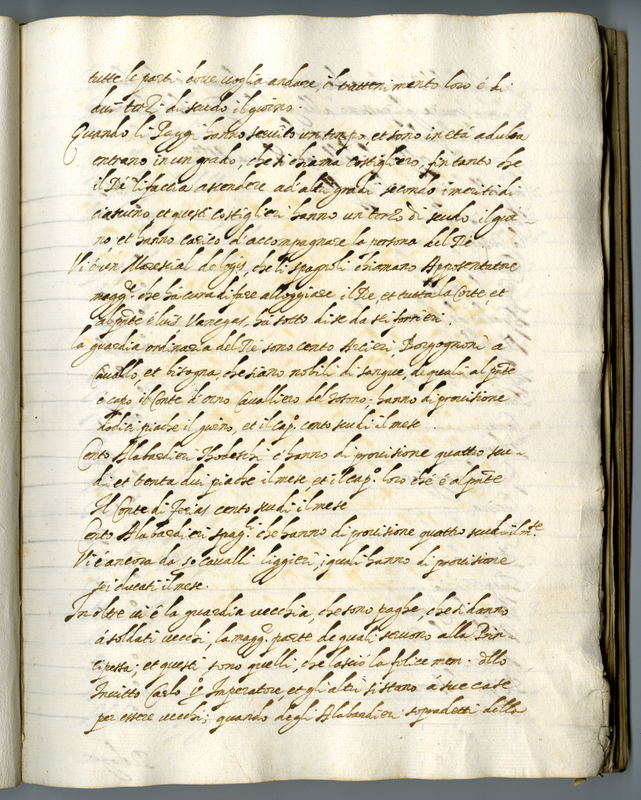 tutte le parti dove voglia andare, il trattenimento loro é di
dui terzi di scudo il giorno.
Quando li Paggi hanno servito un tempo, et sono in età adulta
entrano in un grado, che si chiama costigliero, fin tanto che
il Ré li faccia ascendere ad altri gradi secondo i meriti di
ciascuno, et questi costiglieri hanno un terzo di scudo il gior-
no et hanno carico d'accompagnare la persona del Ré.
Vi é un Marescial de logis, che li spagnoli chiamano Aposentatore
magg.r che ha cura di fare alloggiare il Ré, et tutta la Corte et
al p̃nte é luis Vanegas, há sotto di se da sei forrieri.
la guardia ordinaria del Ré sono cento Arcieri Borgognoni a
Cavallo, et bisogna, che siano nobili di sangue, de quali al p̃nte
é capo il Conte d'orno Cavalliero del Tosone: hanno di provisione
dodici piache il giorno, et il cap.o cento scudi il mese.
Cento Alabardieri Thodeschi é hanno di provisione quattro scu-
di et trenta dui piache il mese, et il cap.o loro che é al p̃nte
Il Conte di Ferias cento scudi il mese
Cento Alabardieri spag.li che hanno di provisione quattro scudi il m.te
Vi é ancora da 50 cavalli liggieri, i quali hanno di provisione
sei ducati il mese.
In oltre vi é la guardia vecchia, che sono paghe, che si danno
á soldati vecchi, la magg.r parte de quali servono alla Prin-
cipessa; et questi sono quelli, che lasciò la felice mem. dello
Invitto Carlo V.o Imperatore et gli altri si stano á sue case
per essere vecchi; quando degli Alabardieri sopradetti della